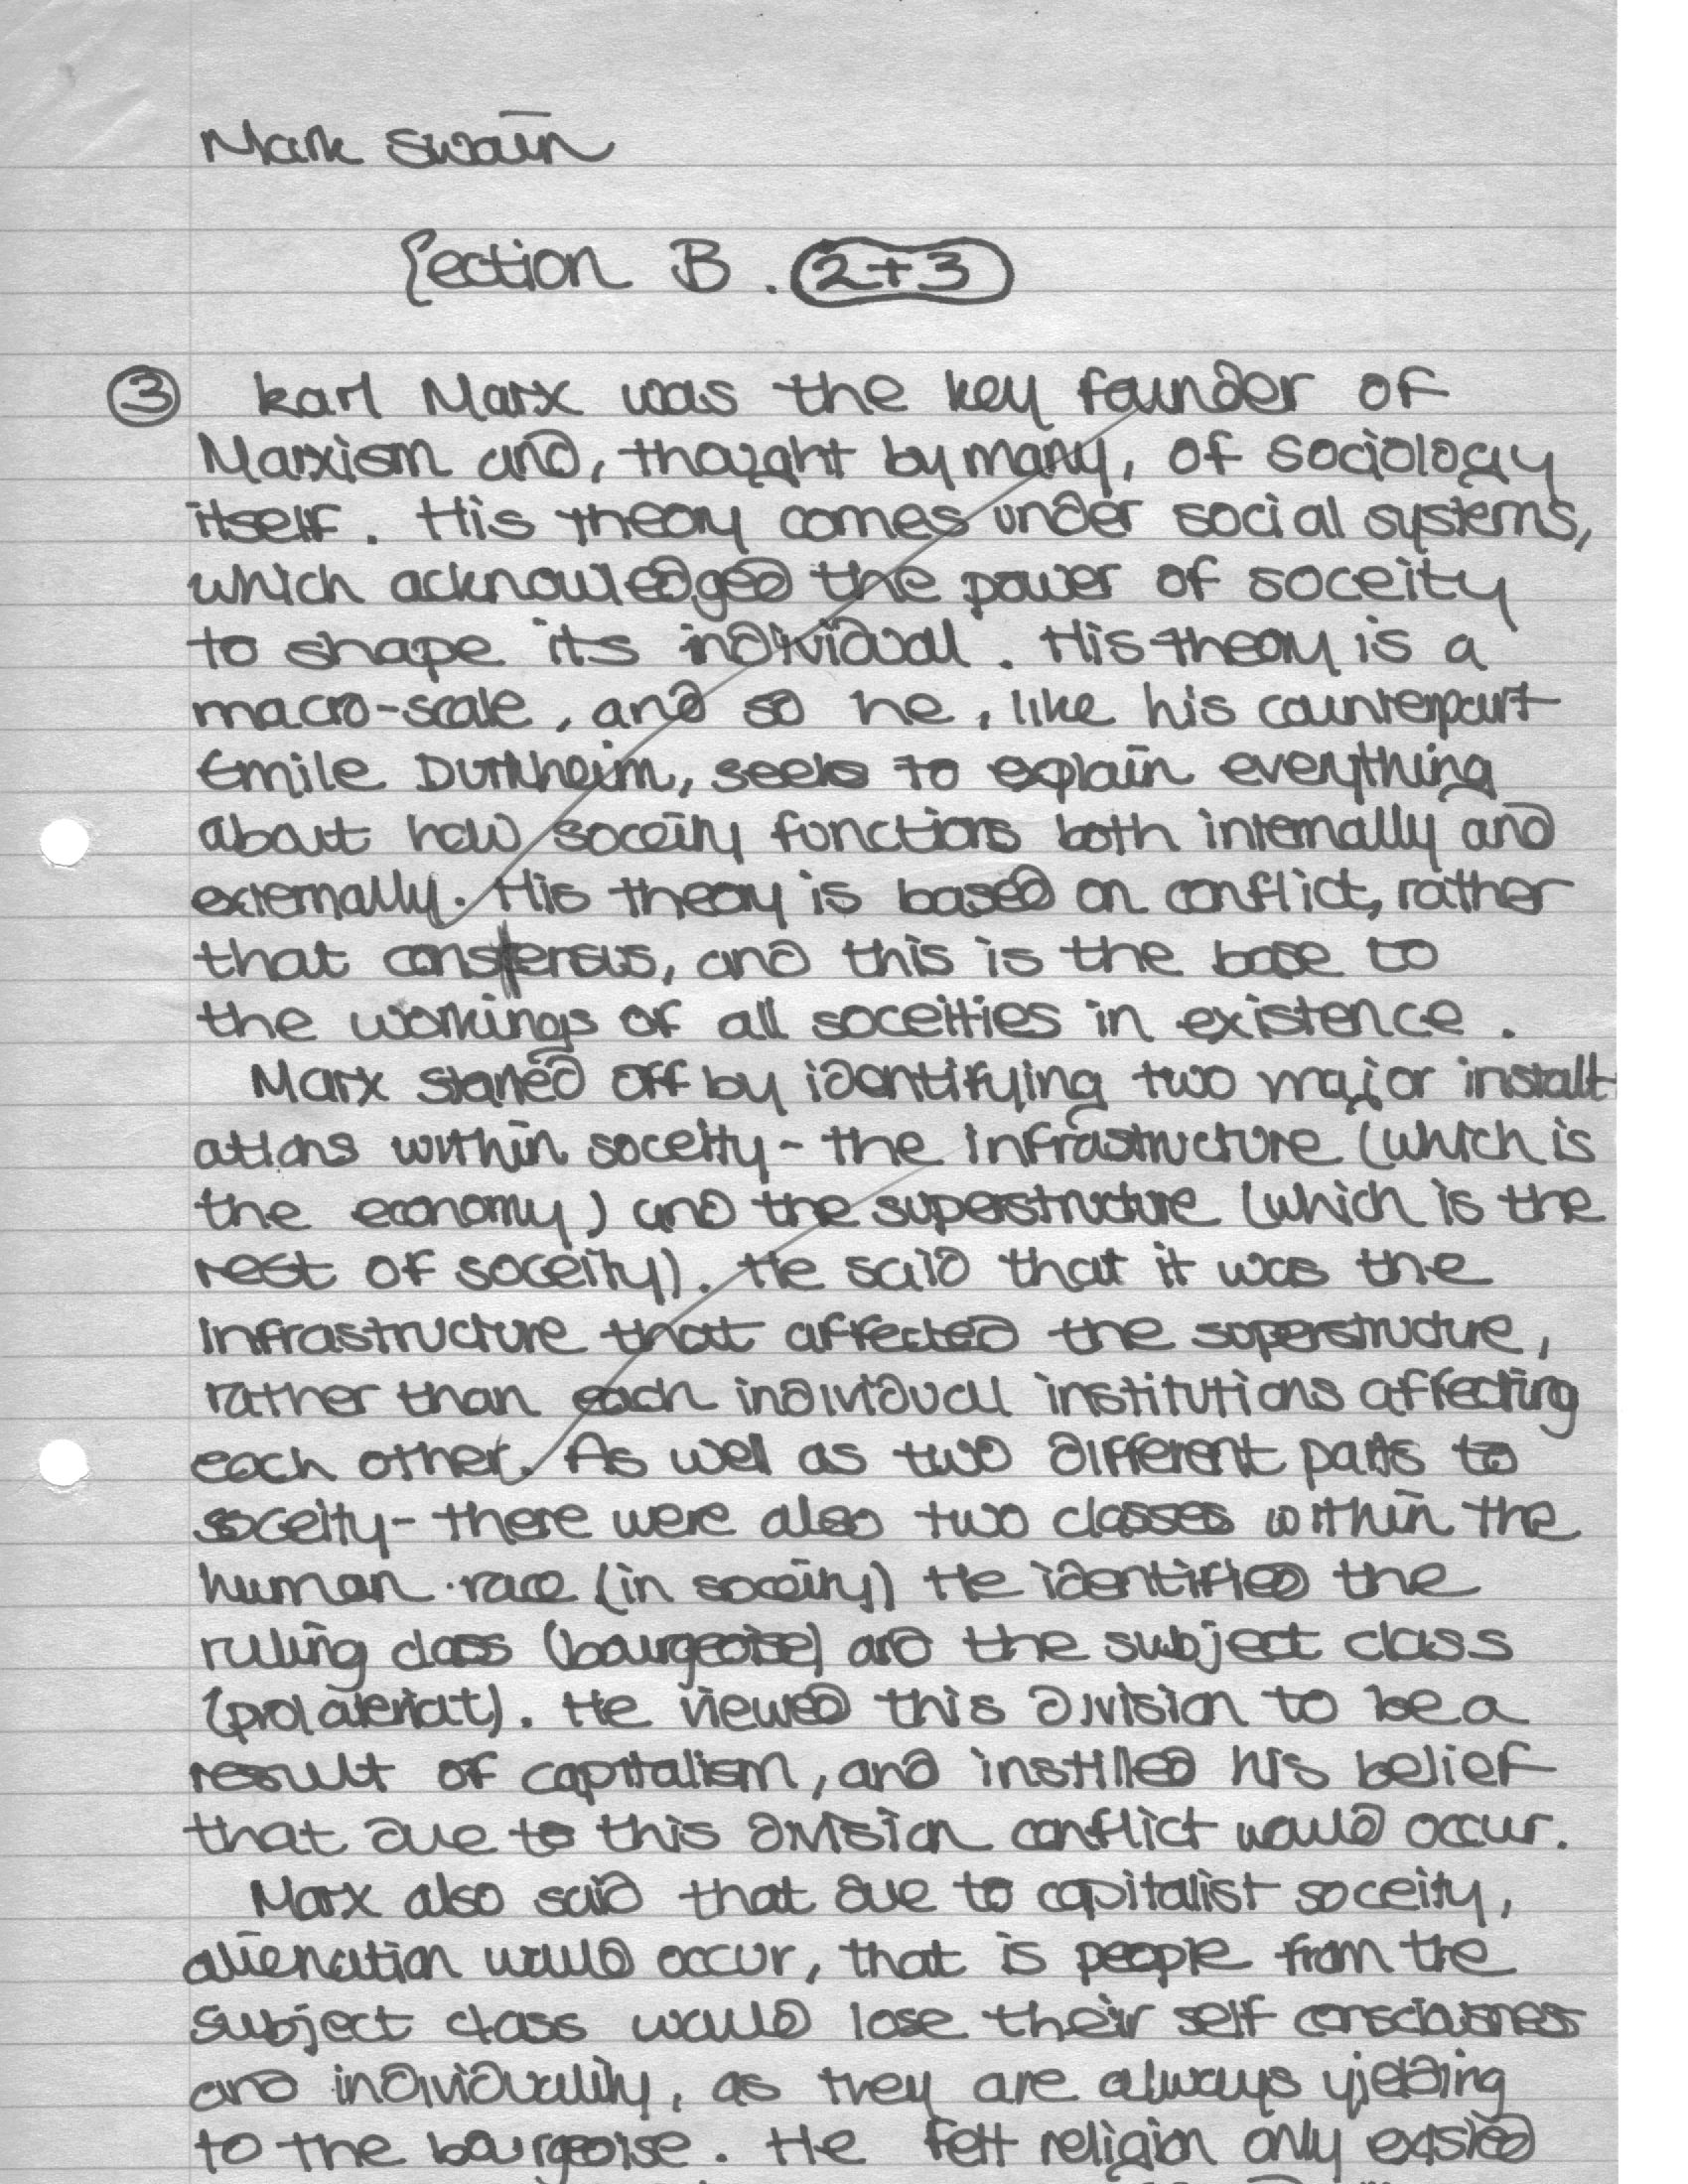 Mark Swain
Section B. 2+3
3 Karl Marx was the key founder of
Marxism and, thought by many, of sociology
itself. His theory comes under social systems,
which acknowledged the power of soceity
to shape its individual. His theory is a
macro-scale, and so he, like his counterpart
Emile Durkheim, seeks to explain everything
about how soceity functions both internally and
externally. His theory is based on conflict, rather
that consensus, and this is the base to
the workings of all soceities in existence.
Marx started off by identifying two major install-
ations within soceity - the infrastructure (which is
the economy) and the superstructure (which is the
rest of soceity). He said that it was the
infrastructure that affected the superstructure,
rather than each individual institutions affecting
each other. As well as two different parts to
soceity - there were also two classes within the
human race (in soceity) He identified the
ruling class (bourgeoise) and the subject class
(prolateriat). He viewed this division to be a
result of capitalism, and instilled his belief
that due to this division conflict would occur.
Marx also said that due to capitalist soceity,
alienation would occur, that is people from the
subject class would lose their self consciousness
and individuality, as they are always yielding
to the bourgeoise. He felt religion only existed